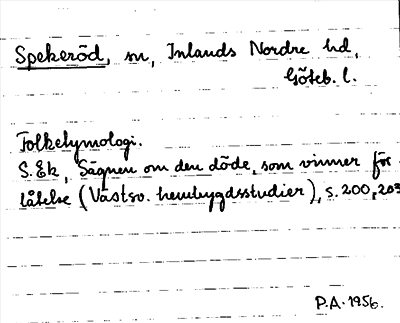 Spekeröd, sn, Inlands Nordre hd,
Göteb. l.
Folketymologi.
S. Ek, Sägnen om den döde, som vinner för-
låtelse (Västsv. hembygdsstudier), s. 200, 203
P.A. 1956.